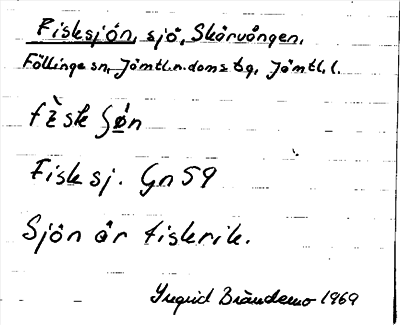 Fisksjön, sjö, Skärvången.
Föllinge sn, Jämtl.n.doms tg, Jämtl. l.
Fisksj. Gn 59
Sjön är fiskrik.
Ingrid Brändemo 1969